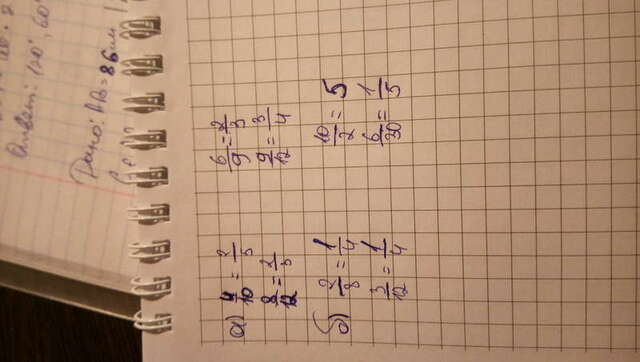 Ответ: 120°, 60°
Дано: AB = 86 см
а) 4/10 = 2/5 6/9 = 2/3
8/12 = 2/3 9/12 = 3/4
б) 2/8 = 1/4 10/2 = 5
3/12 = 1/4 6/30 = 1/5